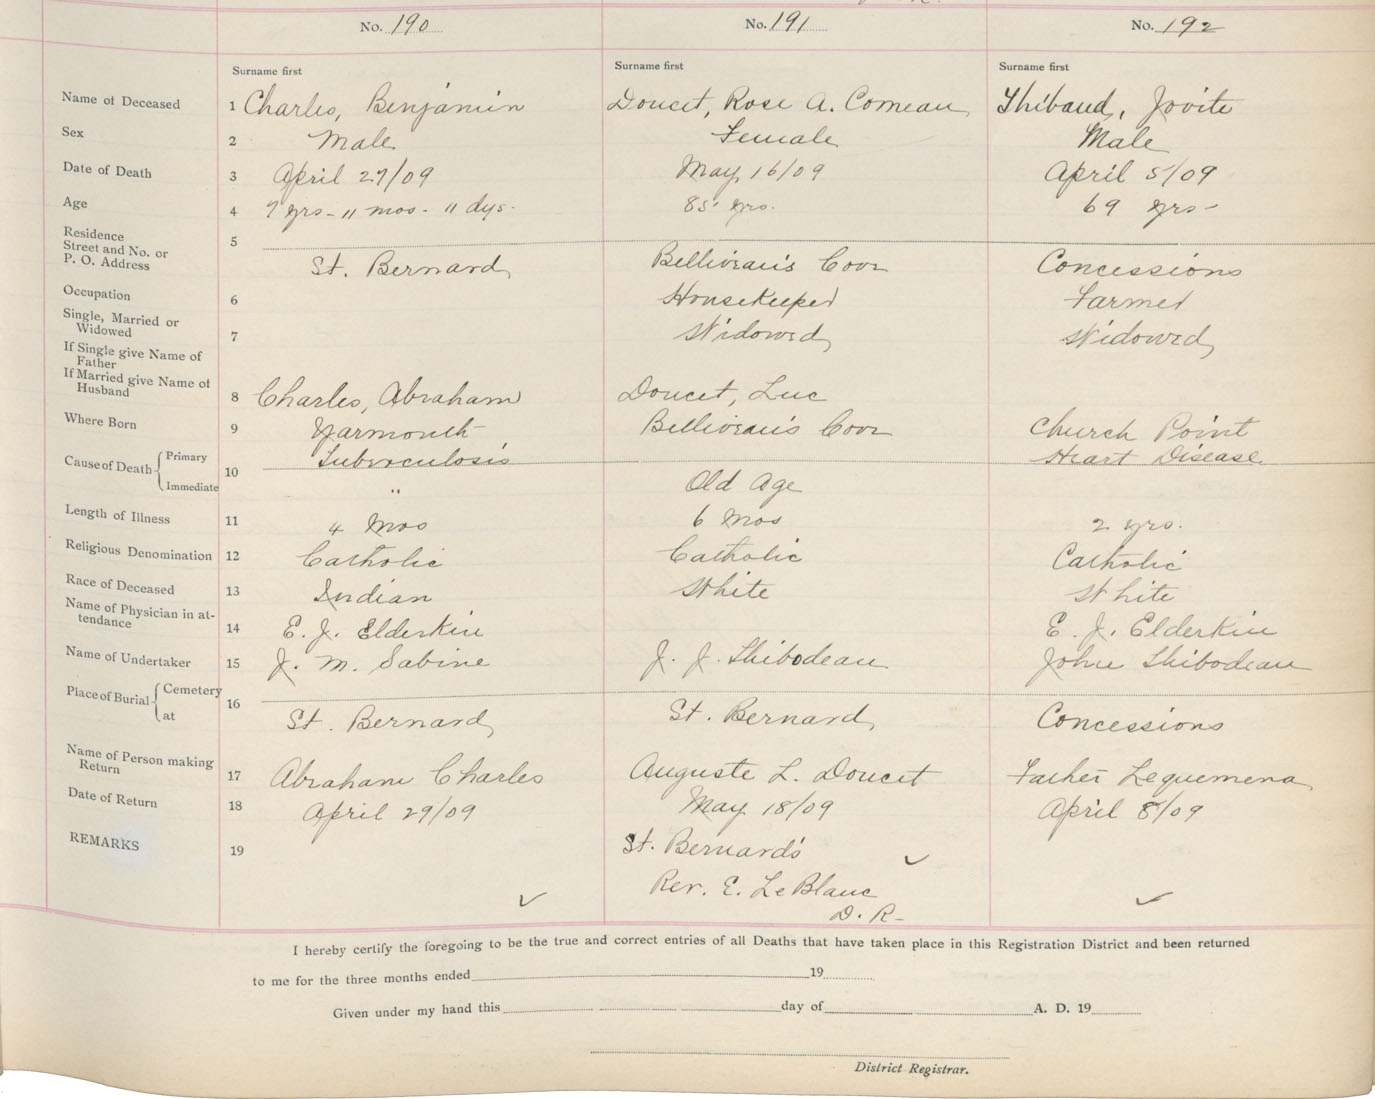 No. 190 No. 191 No. 192
Surname first Surname first Surname first
Name of Deceased 1 Charles, Benjamin Doucet, Rose A. Comeau Thibaud, Jovite
Sex 2 Male Female Male
Date of Death 3 April 27/09 May 16/09 April 5/09
Age 4 7 yrs - 11 mos - 11 dys. 85 yrs. 69 yrs -
Residence
Street and No. or
P. O. Address 5 St. Bernard Belliveau's Cove Concessions
Occupation 6 Housekeeper Farmer
Single, Married or
Widowed 7 Widowed Widowed
If Single give Name of
Father
If Married give Name of
Husband 8 Charles, Abraham Doucet, Luc
Where Born 9 Yarmouth Belliveau's Cove Church Point
Cause of Death Primary 10 Tuberculosis Heart Disease
Immediate " Old Age
Length of Illness 11 4 Mos 6 Mos 2 yrs.
Religious Denomination 12 Catholic Catholic Catholic
Race of Deceased 13 Indian White White
Name of Physician in at-
tendance 14 E. J. Elderkin E. J. Elderkin
Name of Undertaker 15 J. M. Sabine J. J. Thibodeau John Thibodeau
Place of Burial Cemetery 16
at St. Bernard St. Bernard Concessions
Name of Person making
Return 17 Abraham Charles Auguste L. Doucet Father Lequemena
Date of Return 18 April 29/09 May 18/09 April 8/09
REMARKS 19 St. Bernard's
Rev. E. LeBlanc
D. R-
I hereby certify the foregoing to be the true and correct entries of all Deaths that have taken place in this Registration District and been returned
to me for the three months ended 19
Given under my hand this day of A. D. 19
District Registrar.